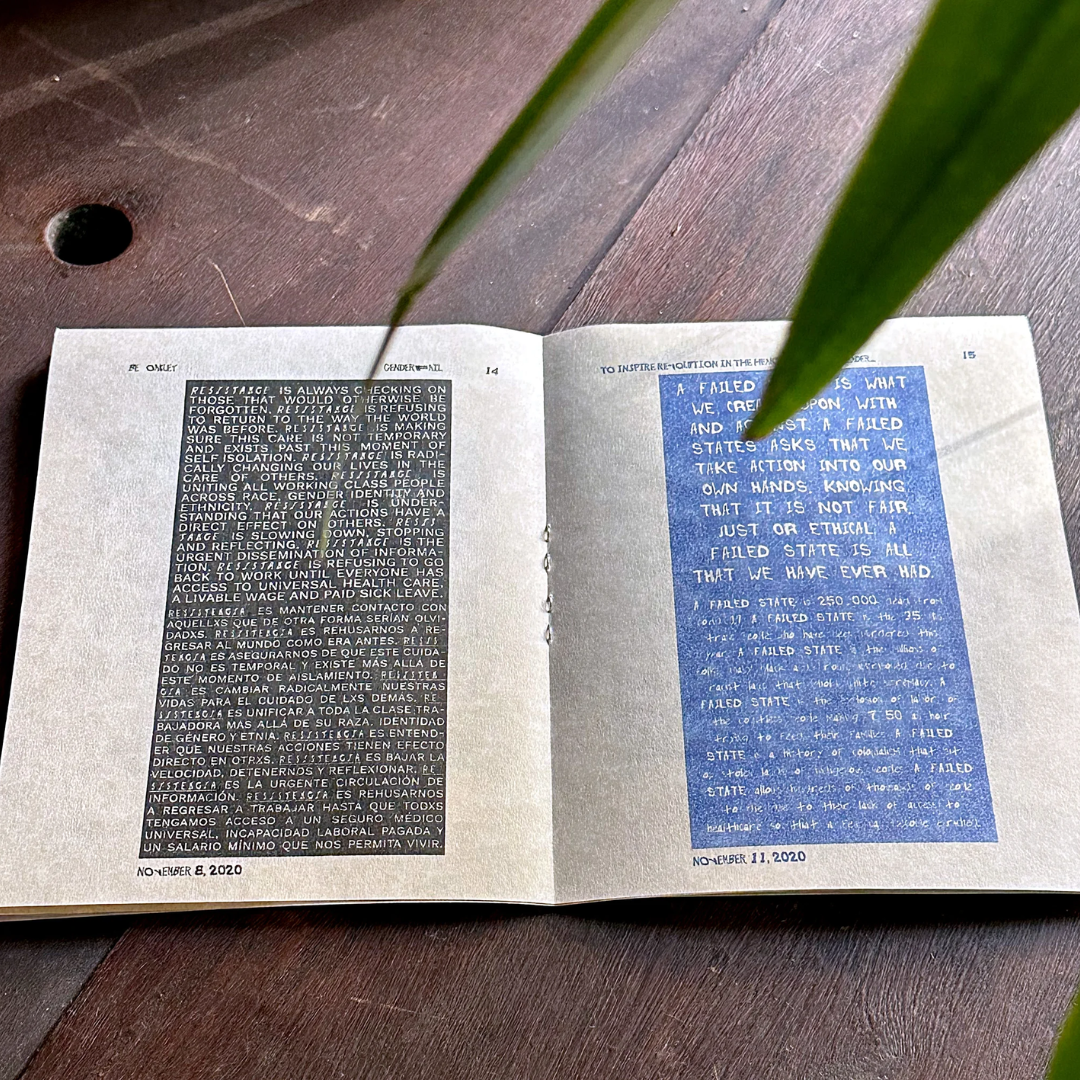 BE OAKLEY GENDERFAIL 14
RESISTANCE IS ALWAYS CHECKING ON
THOSE THAT WOULD OTHERWISE BE
FORGOTTEN. RESISTANCE IS REFUSING
TO RETURN TO THE WAY THE WORLD
WAS BEFORE. RESISTANCE IS MAKING
SURE THIS CARE IS NOT TEMPORARY
AND EXISTS PAST THIS MOMENT OF
SELF ISOLATION. RESISTANCE IS RADI-
CALLY CHANGING OUR LIVES IN THE
CARE OF OTHERS. RESISTANCE IS
UNITING ALL WORKING CLASS PEOPLE
ACROSS RACE, GENDER IDENTITY AND
ETHNICITY. RESISTANCE IS UNDER-
STANDING THAT OUR ACTIONS HAVE A
DIRECT EFFECT ON OTHERS. RESIS-
TANCE IS SLOWING DOWN, STOPPING
AND REFLECTING. RESISTANCE IS THE
URGENT DISSEMINATION OF INFORMA-
TION. RESISTANCE IS REFUSING TO GO
BACK TO WORK UNTIL EVERYONE HAS
ACCESS TO UNIVERSAL HEALTH CARE,
A LIVABLE WAGE AND PAID SICK LEAVE.
RESISTENCIA ES MANTENER CONTACTO CON
AQUELLXS QUE DE OTRA FORMA SERÍAN OLVI-
DADXS. RESISTENCIA ES REHUSARNOS A RE-
GRESAR AL MUNDO COMO ERA ANTES. RESIS-
TENCIA ES ASEGURARNOS DE QUE ESTE CUIDA-
DO NO ES TEMPORAL Y EXISTE MÁS ALLÁ DE
ESTE MOMENTO DE AISLAMIENTO. RESISTEN
CIA ES CAMBIAR RADICALMENTE NUESTRAS
VIDAS PARA EL CUIDADO DE LXS DEMÁS. RE
SISTENCIA ES UNIFICAR A TODA LA CLASE TRA-
BAJADORA MAS ALLÁ DE SU RAZA, IDENTIDAD
DE GÉNERO Y ETNIA. RESISTENCIA ES ENTEND-
ER QUE NUESTRAS ACCIONES TIENEN EFECTO
DIRECTO EN OTRXS. RESISTENCIA ES BAJAR LA
VELOCIDAD, DETENERNOS Y REFLEXIONAR. RE
SISTENCIA ES LA URGENTE CIRCULACIÓN DE
INFORMACIÓN. RESISTENCIA ES REHUSARNOS
A REGRESAR A TRABAJAR HASTA QUE TODXS
TENGAMOS ACCESO A UN SEGURO MÉDICO
UNIVERSAL, INCAPACIDAD LABORAL PAGADA Y
UN SALARIO MÍNIMO QUE NOS PERMITA VIVIR.
NOVEMBER 8, 2020
TO INSPIRE REVOLUTION IN THE 15
A FAILED IS WHAT
WE, UPON, WITH
AND A FAILED
STATES ASKS THAT WE
TAKE ACTION INTO OUR
OWN HANDS, KNOWING
THAT IT IS NOT FAIR,
JUST OR ETHICAL A
FAILED STATE IS ALL
THAT WE HAVE EVER HAD.
A FAILED STATE is 250,000 from
A FAILED STATE is the 35
who have been murdered this
A FAILED STATE is the
to
that white A
FAILED STATE is the of labor of
the making 7.50 an hour
trying to feed their families A FAILED
STATE is a history of that sit
of A FAILED
STATE allows hundreds of thousands of
to to their lack of access to
healthcare so that a few
NOVEMBER 11, 2020